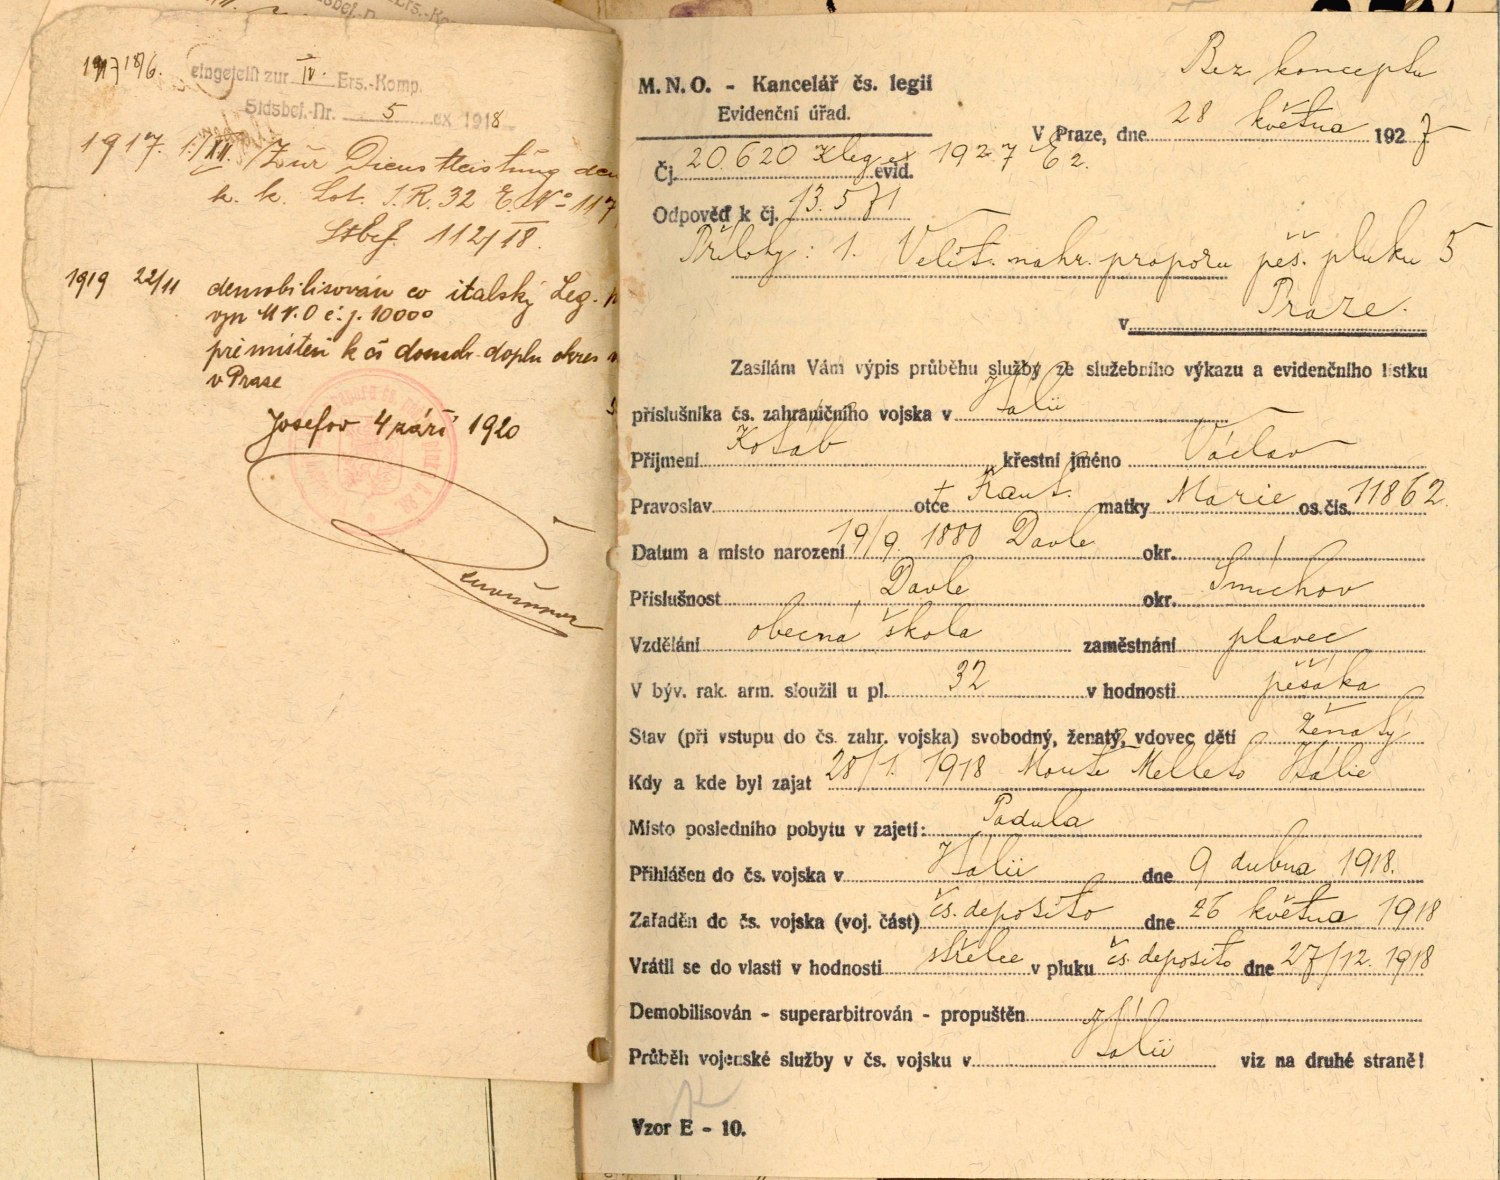 1917 18/6. eingeteilt zur IV. Ers.-Komp.
Stdsbef.-Nr. 5 ex 1918
1917. 1./XII. Zur Dienstleistung
k. k. Lst. I. R. 32 E. No 117
Stbef. 112/18.
1919 22/11 demobilisován co italský Leg.
vyn M.N.O č.j. 10000
přemístěn k čs domob. dopln okres
v Praze
Josefov 4 září 1920
M. N. O. - Kancelář čs. legií
Evidenční úřad.
Bez konceptu
V Praze, dne 28 května 1927
Čj. 20.620 kleg ex 1927 evid. E2.
Odpověď k čj. 13.571
Přílohy: 1. Velit. nahr. praporu pěš. pluku 5
v Praze.
Zasílám Vám výpis průběhu služby ze služebního výkazu a evidenčního lístku
příslušníka čs. zahraničního vojska v Itálii
Příjmení Kotáb křestní jméno Václav
Pravoslav otce † Frant. matky Marie os. čís. 11862.
Datum a místo narození 19/9. 1880 Davle okr.
Příslušnost Davle okr. Smíchov
Vzdělání obecná škola zaměstnání plavec
V býv. rak. arm. sloužil u pl. 32 v hodnosti pěšáka
Stav (při vstupu do čs. zahr. vojska) svobodný, ženatý, vdovec dětí ženatý
Kdy a kde byl zajat 28/1. 1918 Monte Melleto Itálie
Místo posledního pobytu v zajetí: Padula
Přihlášen do čs. vojska v Itálii dne 9 dubna 1918.
Zařaděn do čs. vojska (voj. část) čs. deposito dne 26 května 1918
Vrátil se do vlasti v hodnosti střelce v pluku čs. deposito dne 27/12. 1918
Demobilisován - superarbitrován - propuštěn
Průběh vojenské služby v čs. vojsku v Itálii viz na druhé straně!
Vzor E - 10.